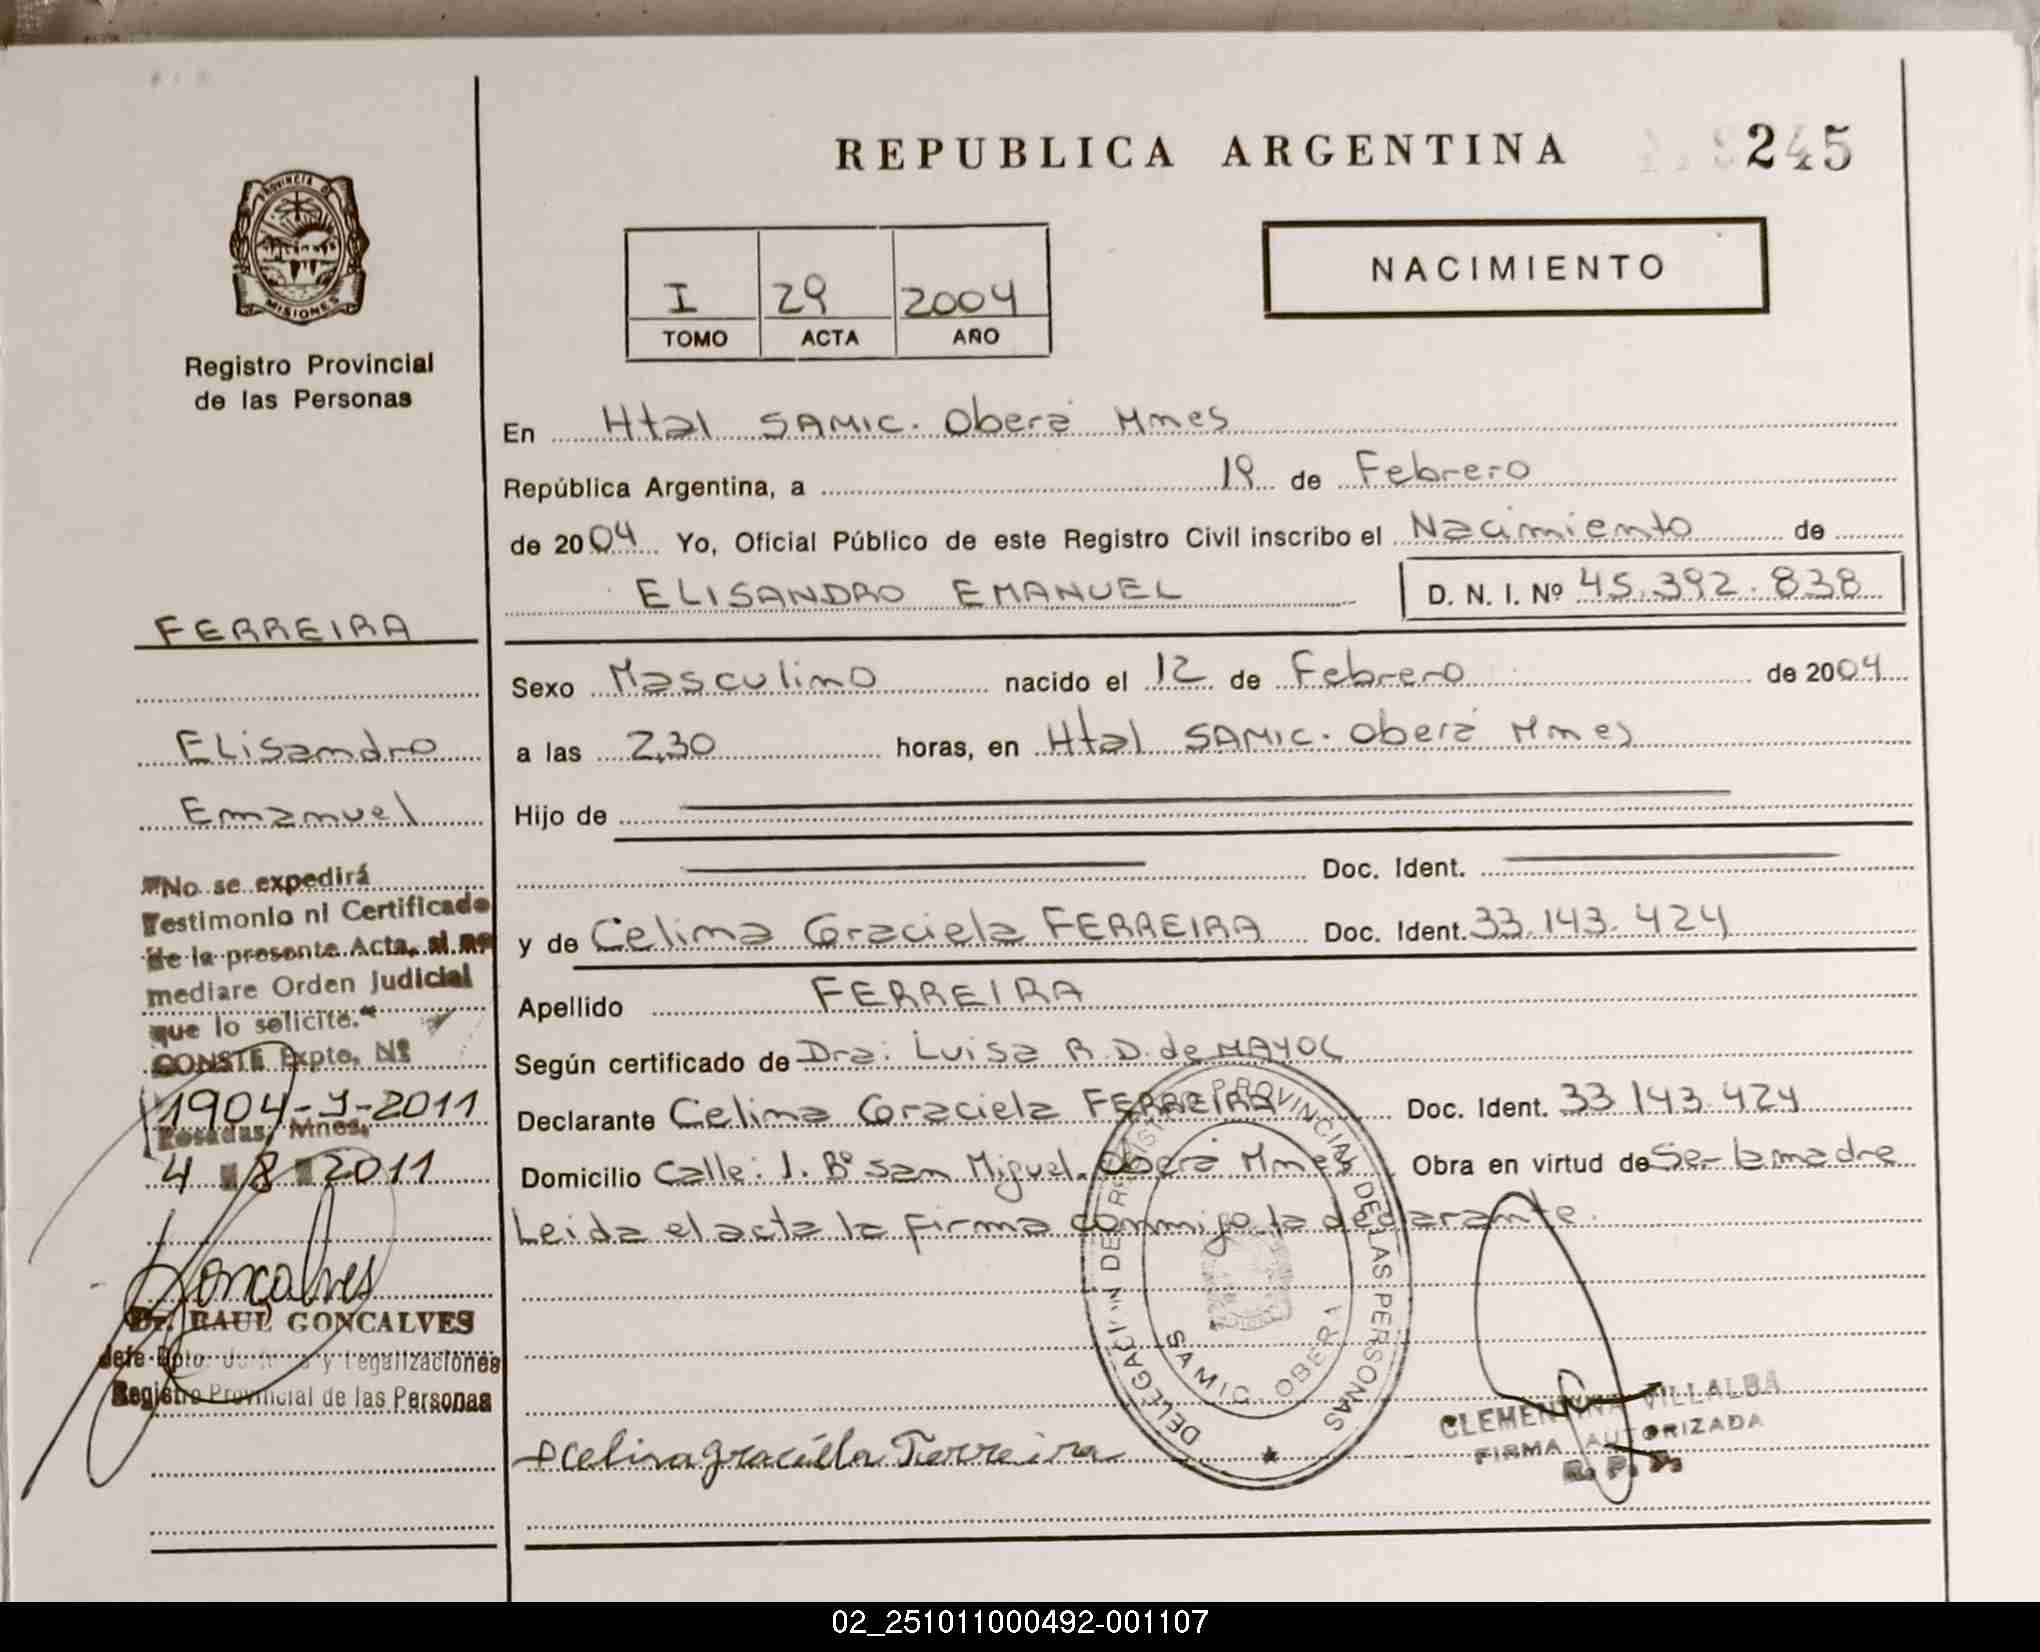 REPUBLICA ARGENTINA 245
PROVINCIA D
MISIONES
Registro Provincial
de las Personas
I 29 2004
TOMO ACTA AÑO
NACIMIENTO
En Htal SAMIC. Oberá Mnes
República Argentina, a 19 de Febrero
de 2004 Yo, Oficial Público de este Registro Civil inscribo el Nacimiento de
ELISANDRO EMANUEL D. N. I. Nº 45.392.838
Sexo Masculino nacido el 12 de Febrero de 2004
a las 2,30 horas, en Htal SAMIC. Oberá Mnes
Hijo de
Doc. Ident.
y de Celina Graciela FERREIRA Doc. Ident. 33.143.424
Apellido FERREIRA
Según certificado de Dra: Luisa R. D. de MAYOL
Declarante Celina Graciela FERREIRA Doc. Ident. 33.143.424
Domicilio Calle: 1. Bº San Miguel. Oberá Mnes Obra en virtud de Ser la madre
Leida el acta la firma conmigo la declarante.
Celina graciela Ferreira
DELEGACION DEL REGISTRO PROVINCIAL DE LAS PERSONAS
SAMIC. OBERA
CLEMENTINA VILLALBA
FIRMA AUTORIZADA
R. P. P.
FERREIRA
Elisandro
Emanuel
"No se expedirá
Testimonio ni Certificado
de la presente Acta, si no
mediare Orden Judicial
que lo solicite."
CONSTE Expte. Nº
1904-J-2011
Posadas, Mnes,
4 8 2011
Goncalves
Dr. RAUL GONCALVES
Jefe Dpto. y Legalizaciones
Registro Provincial de las Personas
02_251011000492-001107